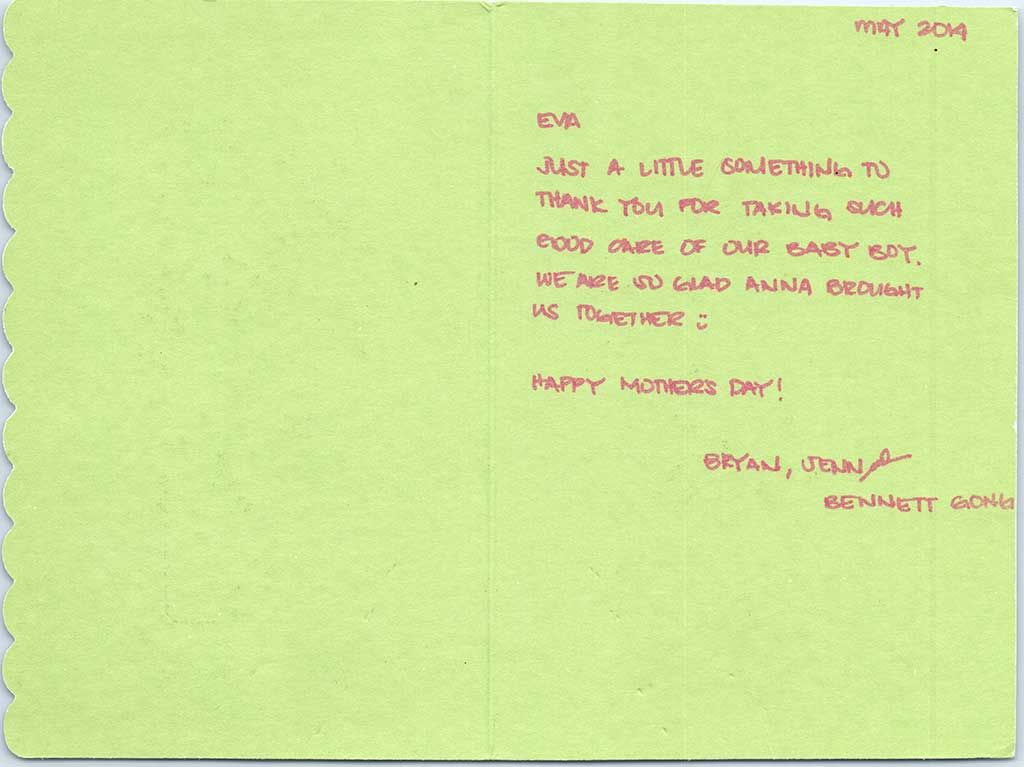 MAY 2014
EVA
JUST A LITTLE SOMETHING TO
THANK YOU FOR TAKING SUCH
GOOD CARE OF OUR BABY BOY.
WE ARE SO GLAD ANNA BROUGHT
US TOGETHER :)
HAPPY MOTHER'S DAY!
BRYAN, JENN &
BENNETT GONG